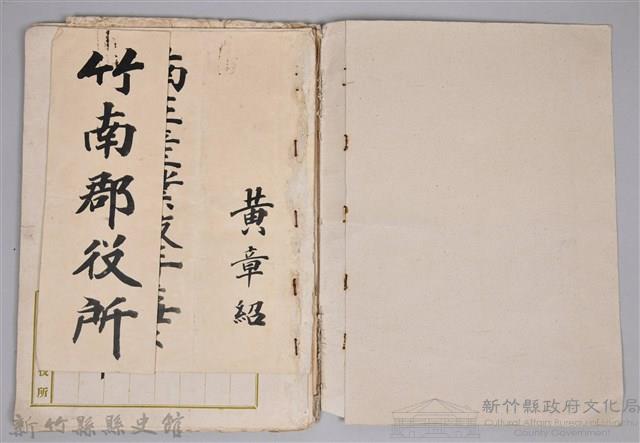 竹南郡役所
黄章紹
役所
新竹縣縣史館
新竹縣政府文化局
Cultural Affairs Bureau of Hsinchu
County Government